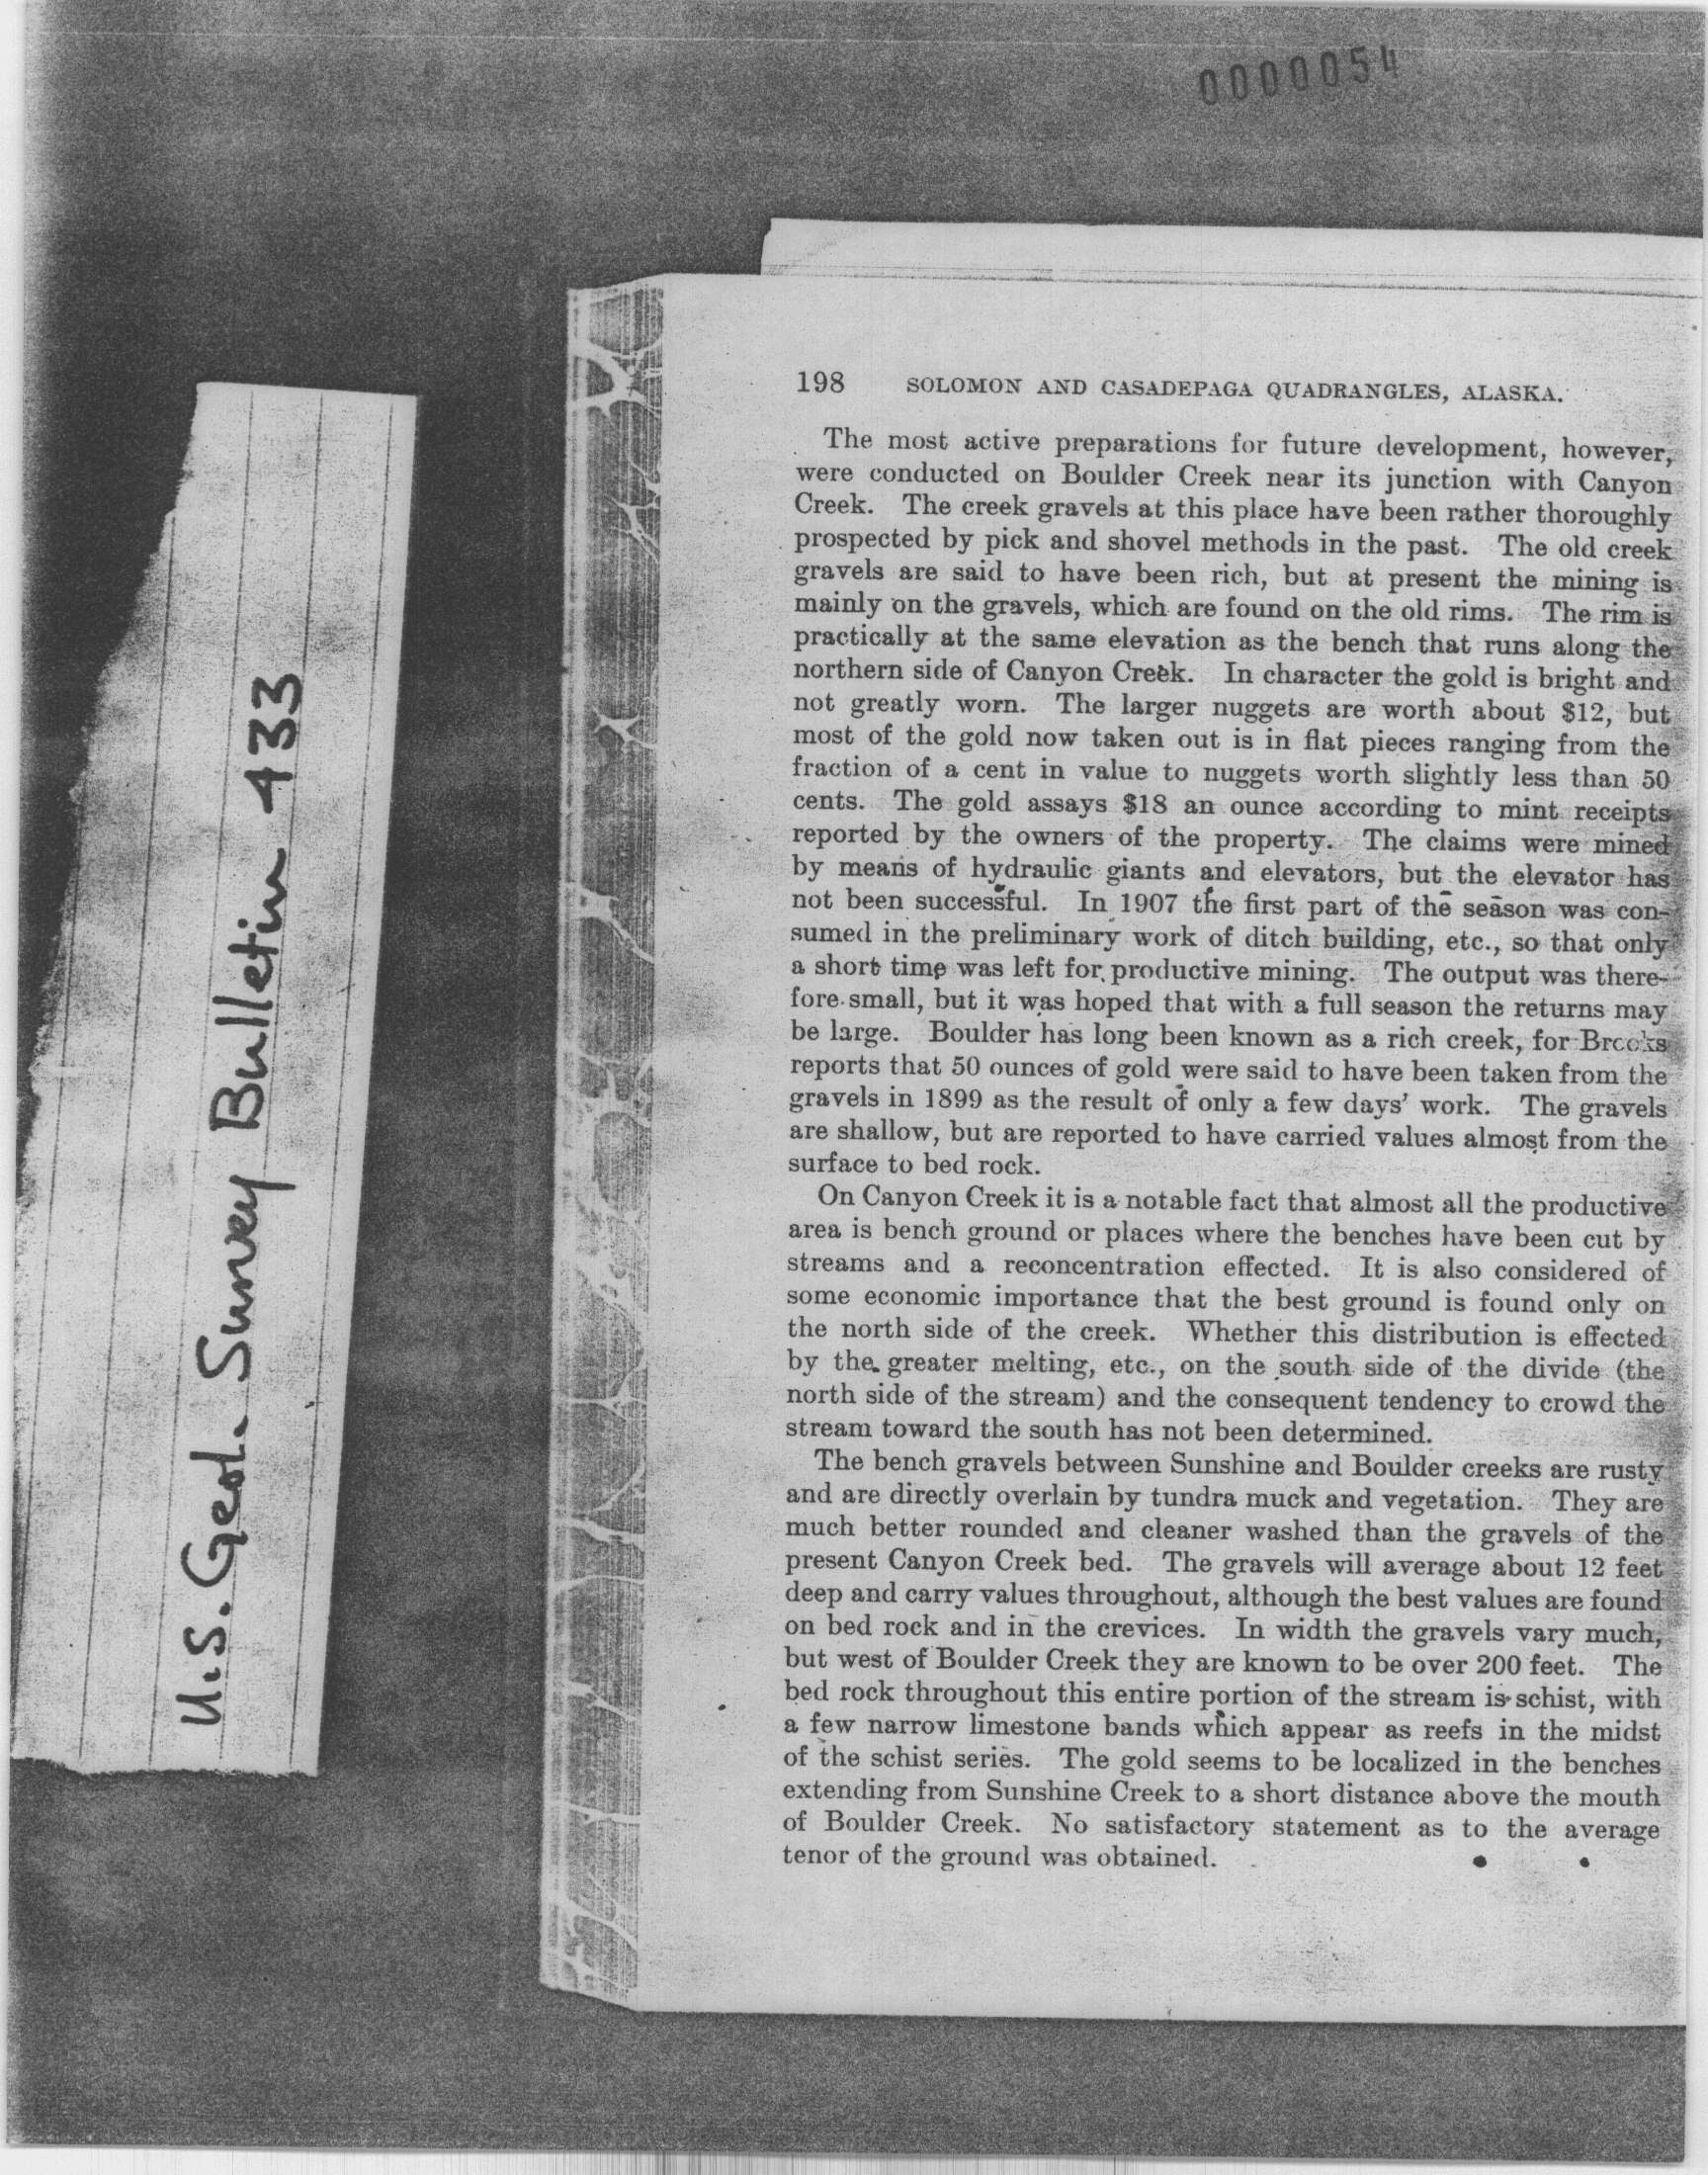 0000054
U.S. Geol. Survey Bulletin 433
198 SOLOMON AND CASADEPAGA QUADRANGLES, ALASKA.
The most active preparations for future development, however,
were conducted on Boulder Creek near its junction with Canyon
Creek. The creek gravels at this place have been rather thoroughly
prospected by pick and shovel methods in the past. The old creek
gravels are said to have been rich, but at present the mining is
mainly on the gravels, which are found on the old rims. The rim is
practically at the same elevation as the bench that runs along the
northern side of Canyon Creek. In character the gold is bright and
not greatly worn. The larger nuggets are worth about $12, but
most of the gold now taken out is in flat pieces ranging from the
fraction of a cent in value to nuggets worth slightly less than 50
cents. The gold assays $18 an ounce according to mint receipts
reported by the owners of the property. The claims were mined
by means of hydraulic giants and elevators, but the elevator has
not been successful. In 1907 the first part of the season was con-
sumed in the preliminary work of ditch building, etc., so that only
a short time was left for productive mining. The output was there-
fore small, but it was hoped that with a full season the returns may
be large. Boulder has long been known as a rich creek, for Brooks
reports that 50 ounces of gold were said to have been taken from the
gravels in 1899 as the result of only a few days' work. The gravels
are shallow, but are reported to have carried values almost from the
surface to bed rock.
On Canyon Creek it is a notable fact that almost all the productive
area is bench ground or places where the benches have been cut by
streams and a reconcentration effected. It is also considered of
some economic importance that the best ground is found only on
the north side of the creek. Whether this distribution is effected
by the greater melting, etc., on the south side of the divide (the
north side of the stream) and the consequent tendency to crowd the
stream toward the south has not been determined.
The bench gravels between Sunshine and Boulder creeks are rusty
and are directly overlain by tundra muck and vegetation. They are
much better rounded and cleaner washed than the gravels of the
present Canyon Creek bed. The gravels will average about 12 feet
deep and carry values throughout, although the best values are found
on bed rock and in the crevices. In width the gravels vary much,
but west of Boulder Creek they are known to be over 200 feet. The
bed rock throughout this entire portion of the stream is schist, with
a few narrow limestone bands which appear as reefs in the midst
of the schist series. The gold seems to be localized in the benches
extending from Sunshine Creek to a short distance above the mouth
of Boulder Creek. No satisfactory statement as to the average
tenor of the ground was obtained.